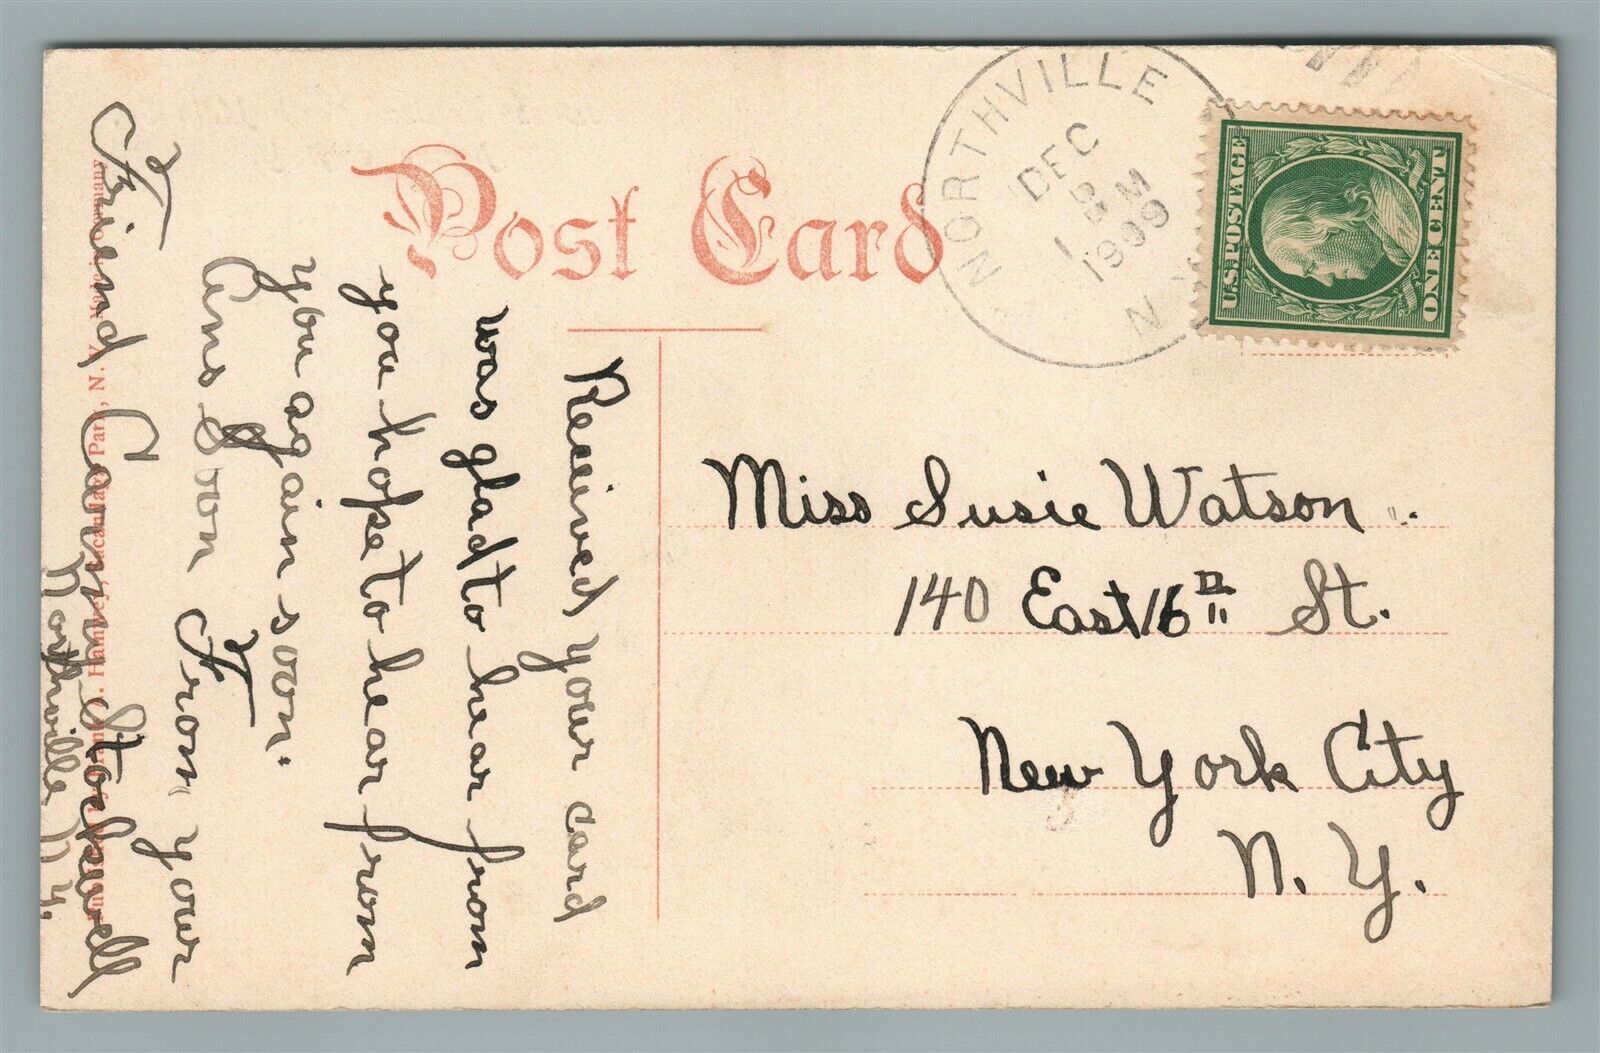 Post Card
NORTHVILLE
DEC
8
1 PM
1909
N.Y.
U.S. POSTAGE
ONE CENT
Received your card
was glad to hear from
you hope to hear from
you again soon.
Ans Soon From your
Friend
Stockwell
Northville N.Y.
Miss Susie Watson
140 East 16th St.
New York City
N. Y.
Park, N. Y. Made in Germany